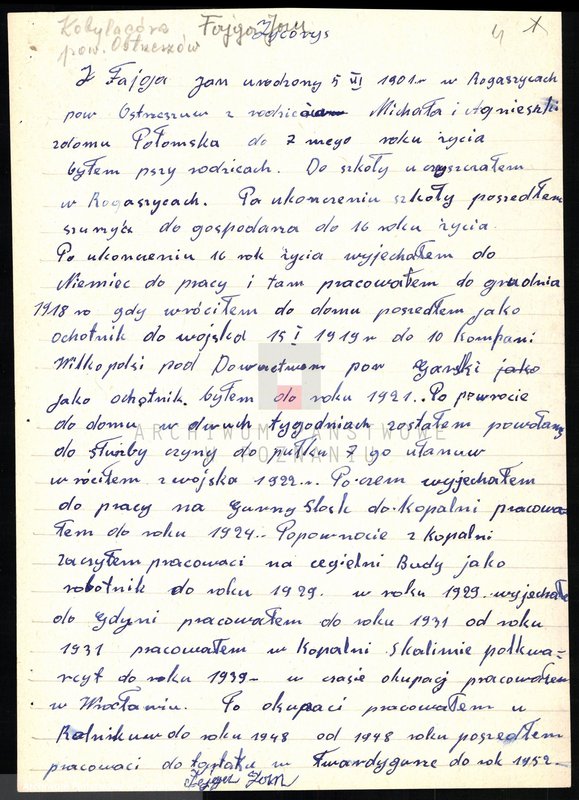 Kobylagóra Fajga Jan
pow. Ostrzeszów Życorys 4
Fajga Jan urodzony 5 VI 1901 r w Rogaszycach
pow Ostrzeszuw z rodzicuw Michała i Agnieszki
zdomu Potomska do 7 mego roku życia
byłem pszy rodzicach. Do szkoły uczyszczałem
w Rogaszycach. Pa ukonczeniu szkoły poszedłem
do gospodarza do 16 roku życia
Po ukonczeniu 16 rok życia wyjechałem do
Niemiec do pracy i tam pracowałem do grudnia
1918 ro gdy wróciłem do domu poszedłem jako
ochotnik do wojska 15 I 1919 r do 10 kompani
Wilkopolski pod Dowuctwem pow Garski jako
jako ochotnik byłem do roku 1921. Po powrocie
do domu w dwuch tygodniach zostałem powołany
do słuńby czyny do pułku 7 go ułanuw
wróciłem z wojska 1922 r. Po czem wyjechałem
do pracy na Gurny Slosk do Kopalni pracowa=
łem do roku 1924. Popowrocie z Kopalni
zaczyłem pracowaci na cegielni Budy jako
robotnik do roku 1929. w roku 1929. wyjechałem
do Gdyni pracowałem do roku 1931 od roku
1931 pracowałem w Kopalni Skalimie połkwa=
rcyt do roku 1939 - w czasie okupacj pracowałem
w Wrocłaniu. Po okupaci pracowałem u
Rolnikuw do roku 1948 od 1948 roku poszedłem
pracowaci do tartaku w Twardygurze do rok 1952 -
Fajga Jan
ARCHIWUM PAŃSTWOWE
W POZNANIU